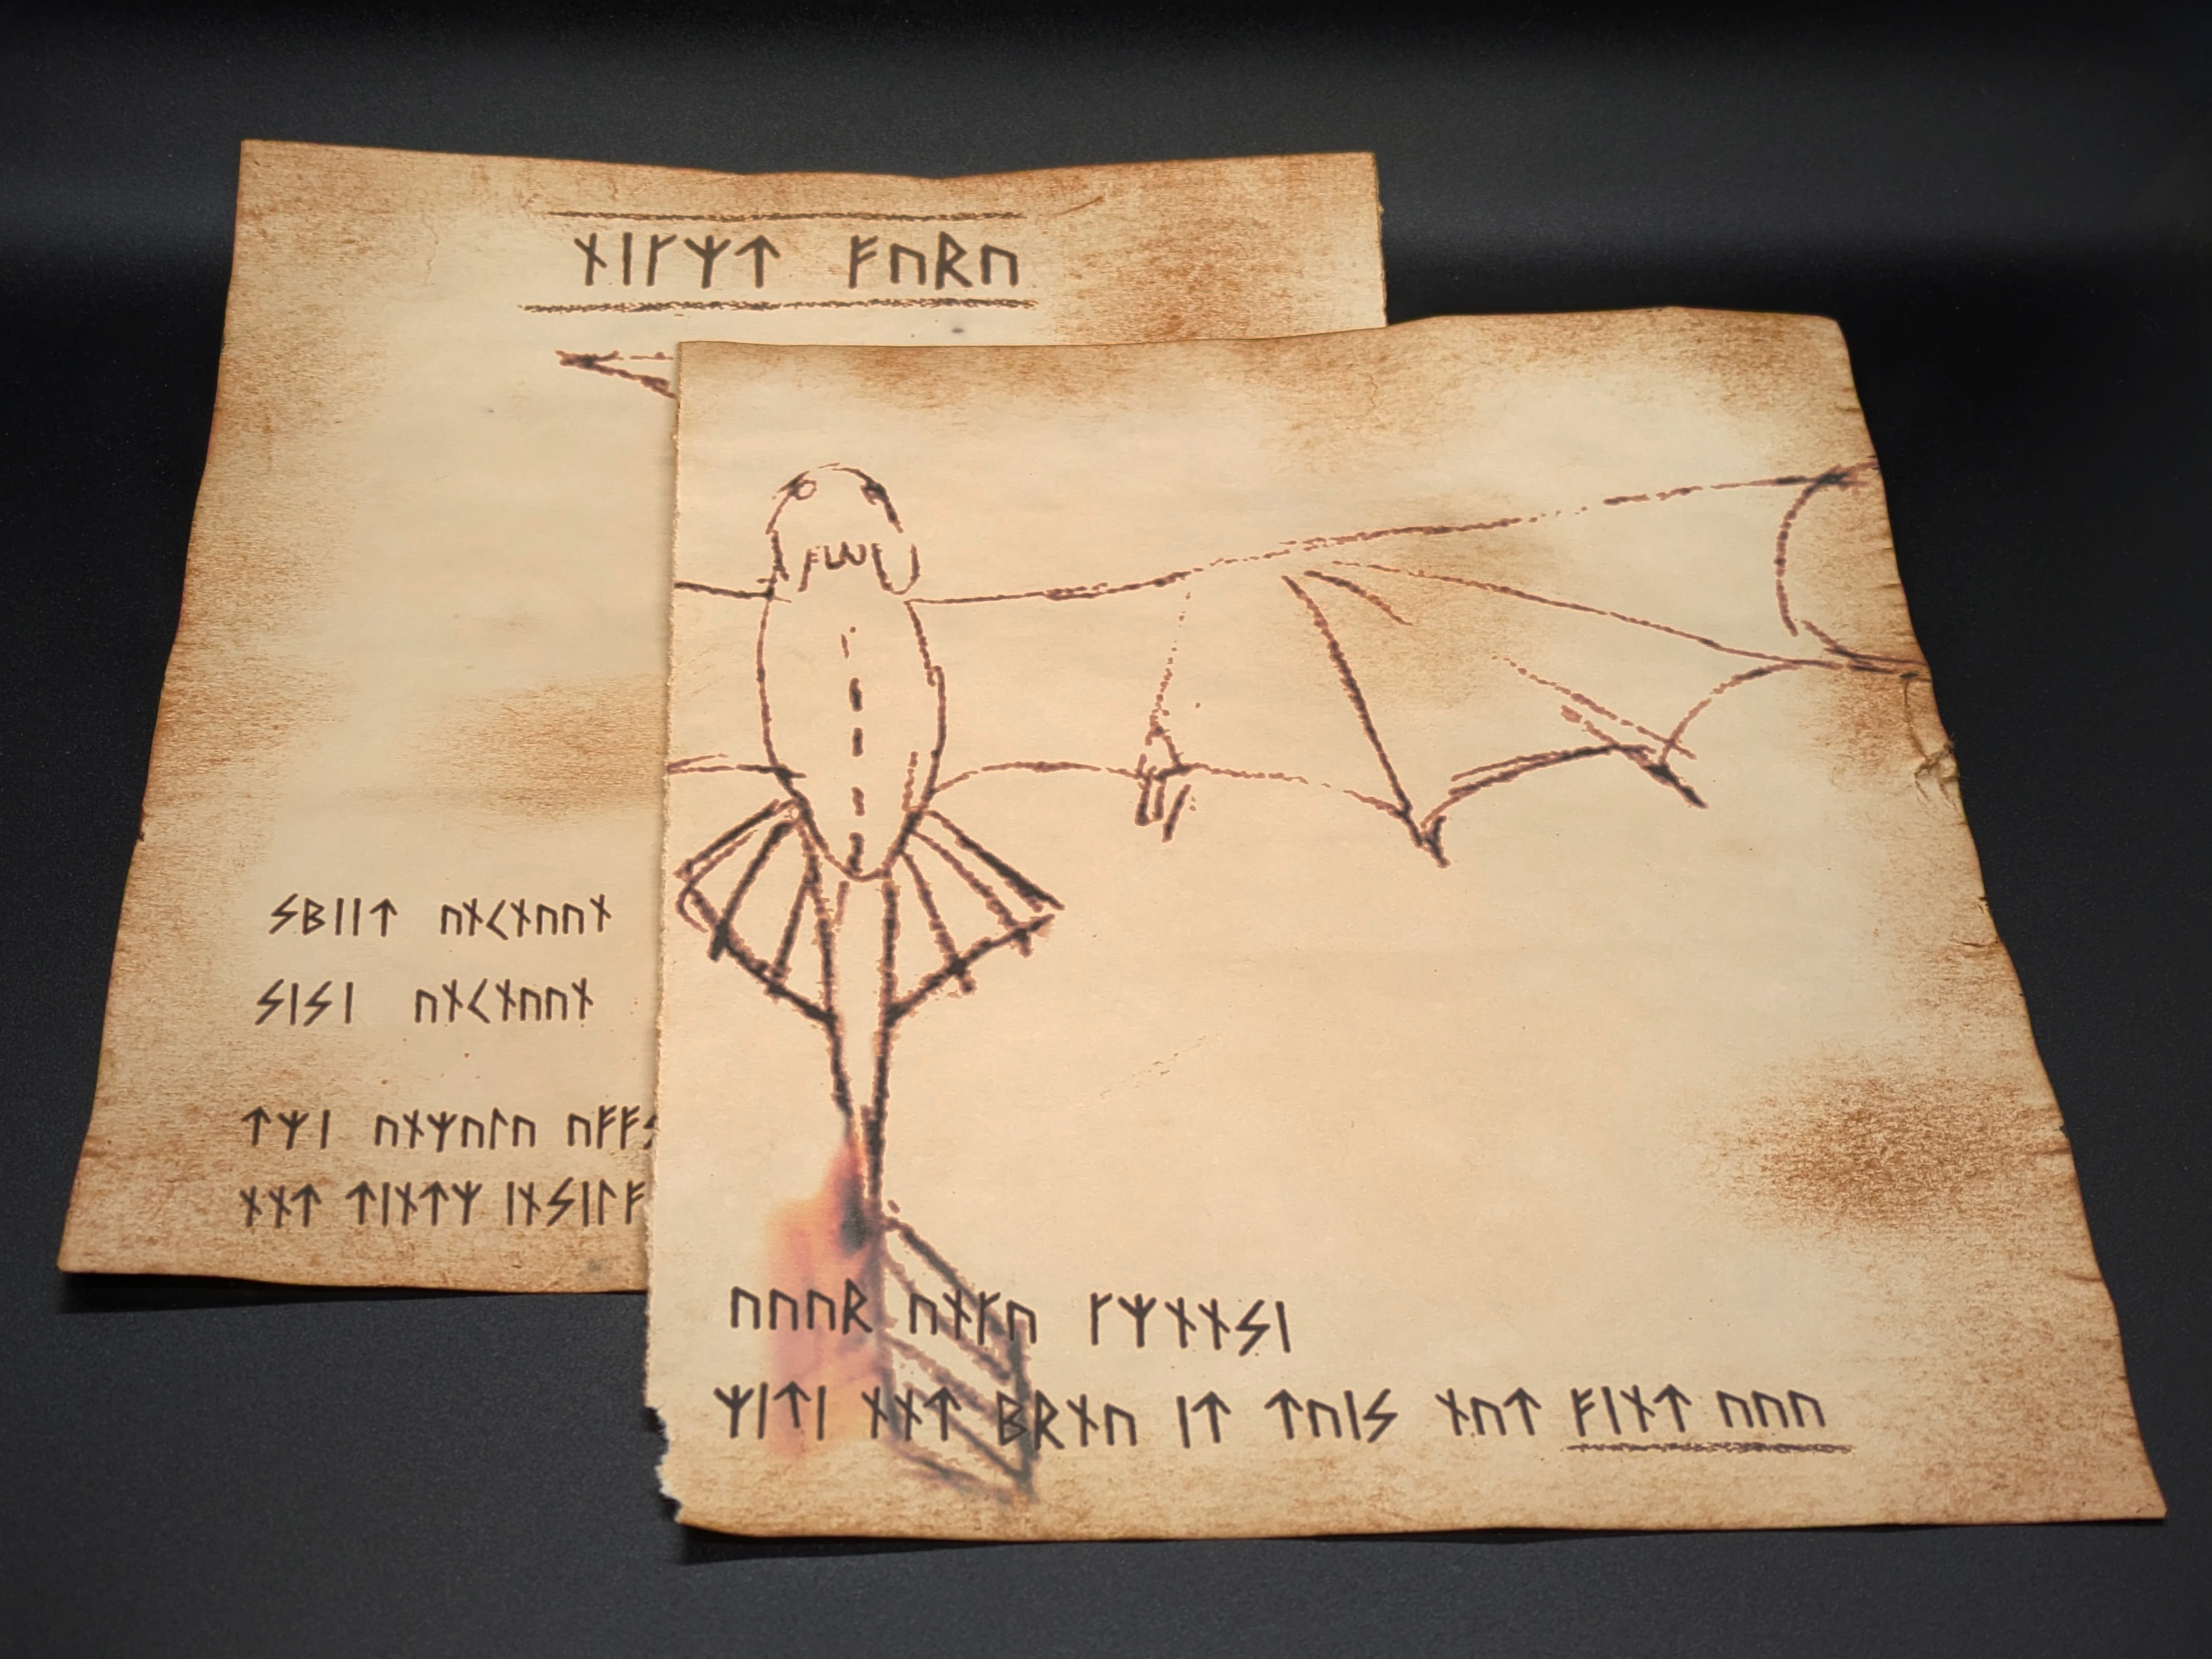 ᚾᛁᚴᛉᛏ ᚠᚢᚱᚢ
ᛋᛒᛁᛁᛏ ᚢᚾᚲᚾᚢᚢᚾ
ᛋᛁᛋᛁ ᚢᚾᚲᚾᚢᚢᚾ
ᛏᛉᛁ ᚢᚾᛉᚢᛚᚢ ᚢᚠᚠᛋ
ᚾᚾᛏ ᛏᛁᚾᛏᛉ ᛁᚾᛋᛁᛚᚠ
ᚢᚢᚢᚱ ᚢᚾᚴᚢ ᚴᛉᚾᚾᛋᛁ
ᛉᛁᛏᛁ ᚾᚾᛏ ᛒᚱᚾᚢ ᛁᛏ ᛏᚢᛁᛋ ᚾᚢᛏ ᚠᛁᚾᛏ ᚢᚢᚢ